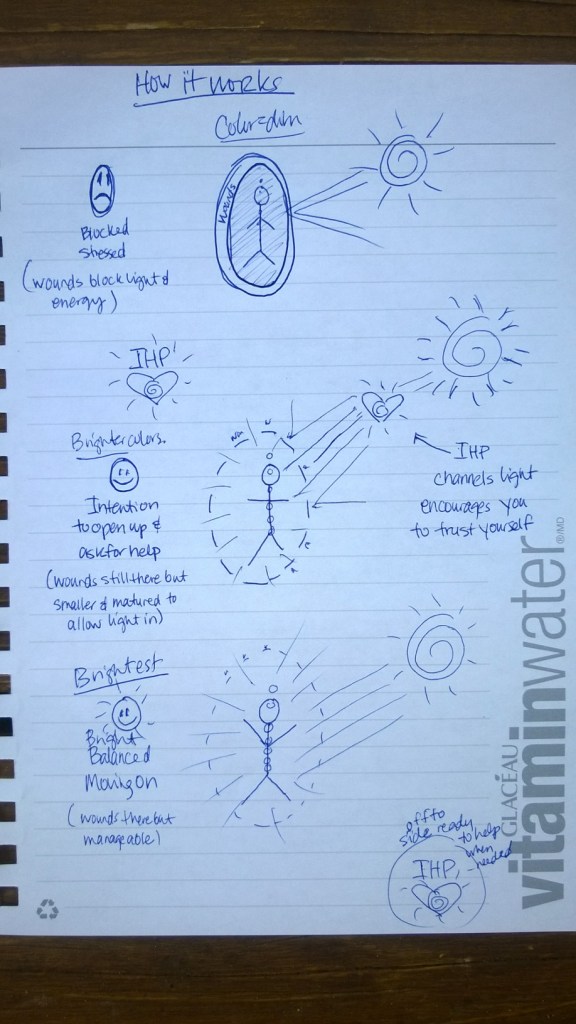 How it works
Color=dim
wounds
Blocked
stressed
(wounds block light &
energy)
IHP
Brighter colors.
Intention
to open up &
ask for help
(wounds still there but
smaller & matured to
allow light in)
IHP
channels light
encourages you
to trust yourself
Brightest
Bright
Balanced
Moving On
(wounds there but
manageable)
off to
side ready
to help
when
needed
IHP
GLACÉAU
vitaminwater